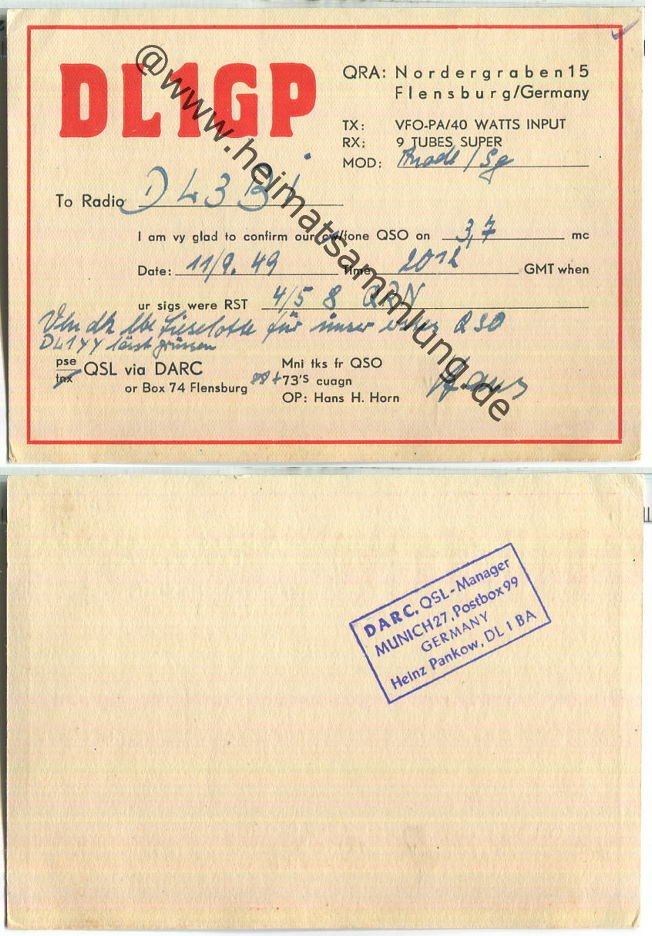 DL1GP
QRA: Nordergraben 15
Flensburg/Germany
TX: VFO-PA/40 WATTS INPUT
RX: 9 TUBES SUPER
MOD: Anode/Sg
To Radio DL3BI
I am vy glad to confirm our cw/fone QSO on 3,7 mc
Date: 11/9.49 Time 2012 GMT when
ur sigs were RST 4/5 8 QRN
Vln dk lbe Lieselotte für unser QSO
DL1YY lässt grüssen
pse QSL via DARC
tnx or Box 74 Flensburg
Mni tks fr QSO
88 + 73'S cuagn
OP: Hans H. Horn
Hans
@www.heimatsammlung.de
DARC, QSL-Manager
MUNICH 27, Postbox 99
GERMANY
Heinz Pankow, DL 1 BA